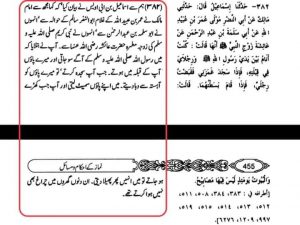 (۳۸۲) ہم سے اسماعیل بن ابی اویس نے بیان کیا کہ کہا مجھ سے امام
مالک نے عمر بن عبیداللہ کے غلام ابوالنضر سالم کے حوالہ سے، انہوں
نے ابو سلمہ بن عبدالرحمٰن سے، انہوں نے نبی کریم صلی اللہ علیہ و
سلم کی زوجہ مطہرہ حضرت عائشہ رضی اللہ عنہا سے۔ آپ نے بتلایا کہ
میں رسول اللہ صلی اللہ علیہ و سلم کے آگے سو جاتی اور میرے پاؤں
آپ کے قبلہ میں ہوتے۔ جب آپ سجدہ کرتے، تو میرے پاؤں کو
آہستہ سے دبا دیتے۔ میں اپنے پاؤں سمیٹ لیتی اور آپ جب کھڑے
۳۸۲- حَدَّثَنَا إِسْمَاعِيلُ قَالَ: حَدَّثَنِي
مَالِكٌ عَنْ أَبِي النَّضْرِ مَوْلَى عُمَرَ بْنِ عُبَيْدِ
اللهِ عَنْ أَبِي سَلَمَةَ بْنِ عَبْدِ الرَّحْمَنِ عَنْ
عَائِشَةَ زَوْجِ النَّبِيِّ ﷺ أَنَّهَا قَالَتْ: كُنْتُ
أَنَامُ بَيْنَ يَدَيْ رَسُولِ اللهِ ﷺ وَرِجْلاَيَ
فِي قِبْلَتِهِ، فَإِذَا سَجَدَ غَمَزَنِي فَقَبَضْتُ
رِجْلَيَّ، فَإِذَا قَامَ بَسَطْتُهُمَا. قَالَتْ:
نماز کے احکام و مسائل
455
ہو جاتے تو میں انہیں پھر پھیلا دیتی۔ ان دنوں گھروں میں چراغ بھی
نہیں ہوا کرتے تھے۔
وَالْبُيُوتُ يَوْمَئِذٍ لَيْسَ فِيهَا مَصَابِيحُ.
[أطرافه في : ۳۸۳، ۳۸٤، ٥۰۸، ٥۱۱،
٥۱۲، ٥۱۳، ٥۱٤، ٥۱٥، ٥۱۹،
۹۹۷، ۱۲۰۹، ٦۲۷٦].